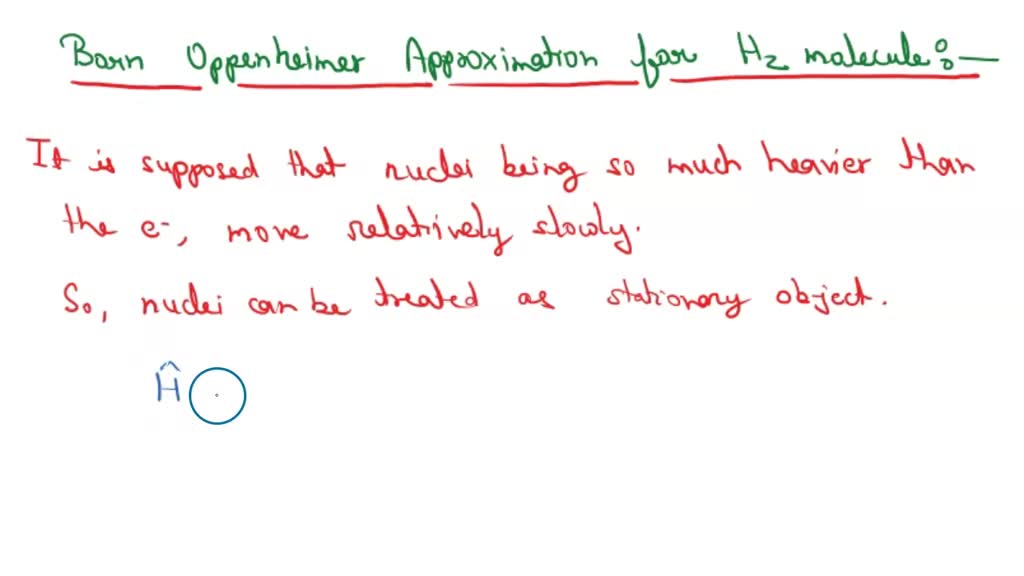 Born Oppenheimer Approximation for H₂ molecule:—
It is supposed that nuclei being so much heavier than
the e⁻, move relatively slowly.
So, nuclei can be treated as stationary object.
Ĥ